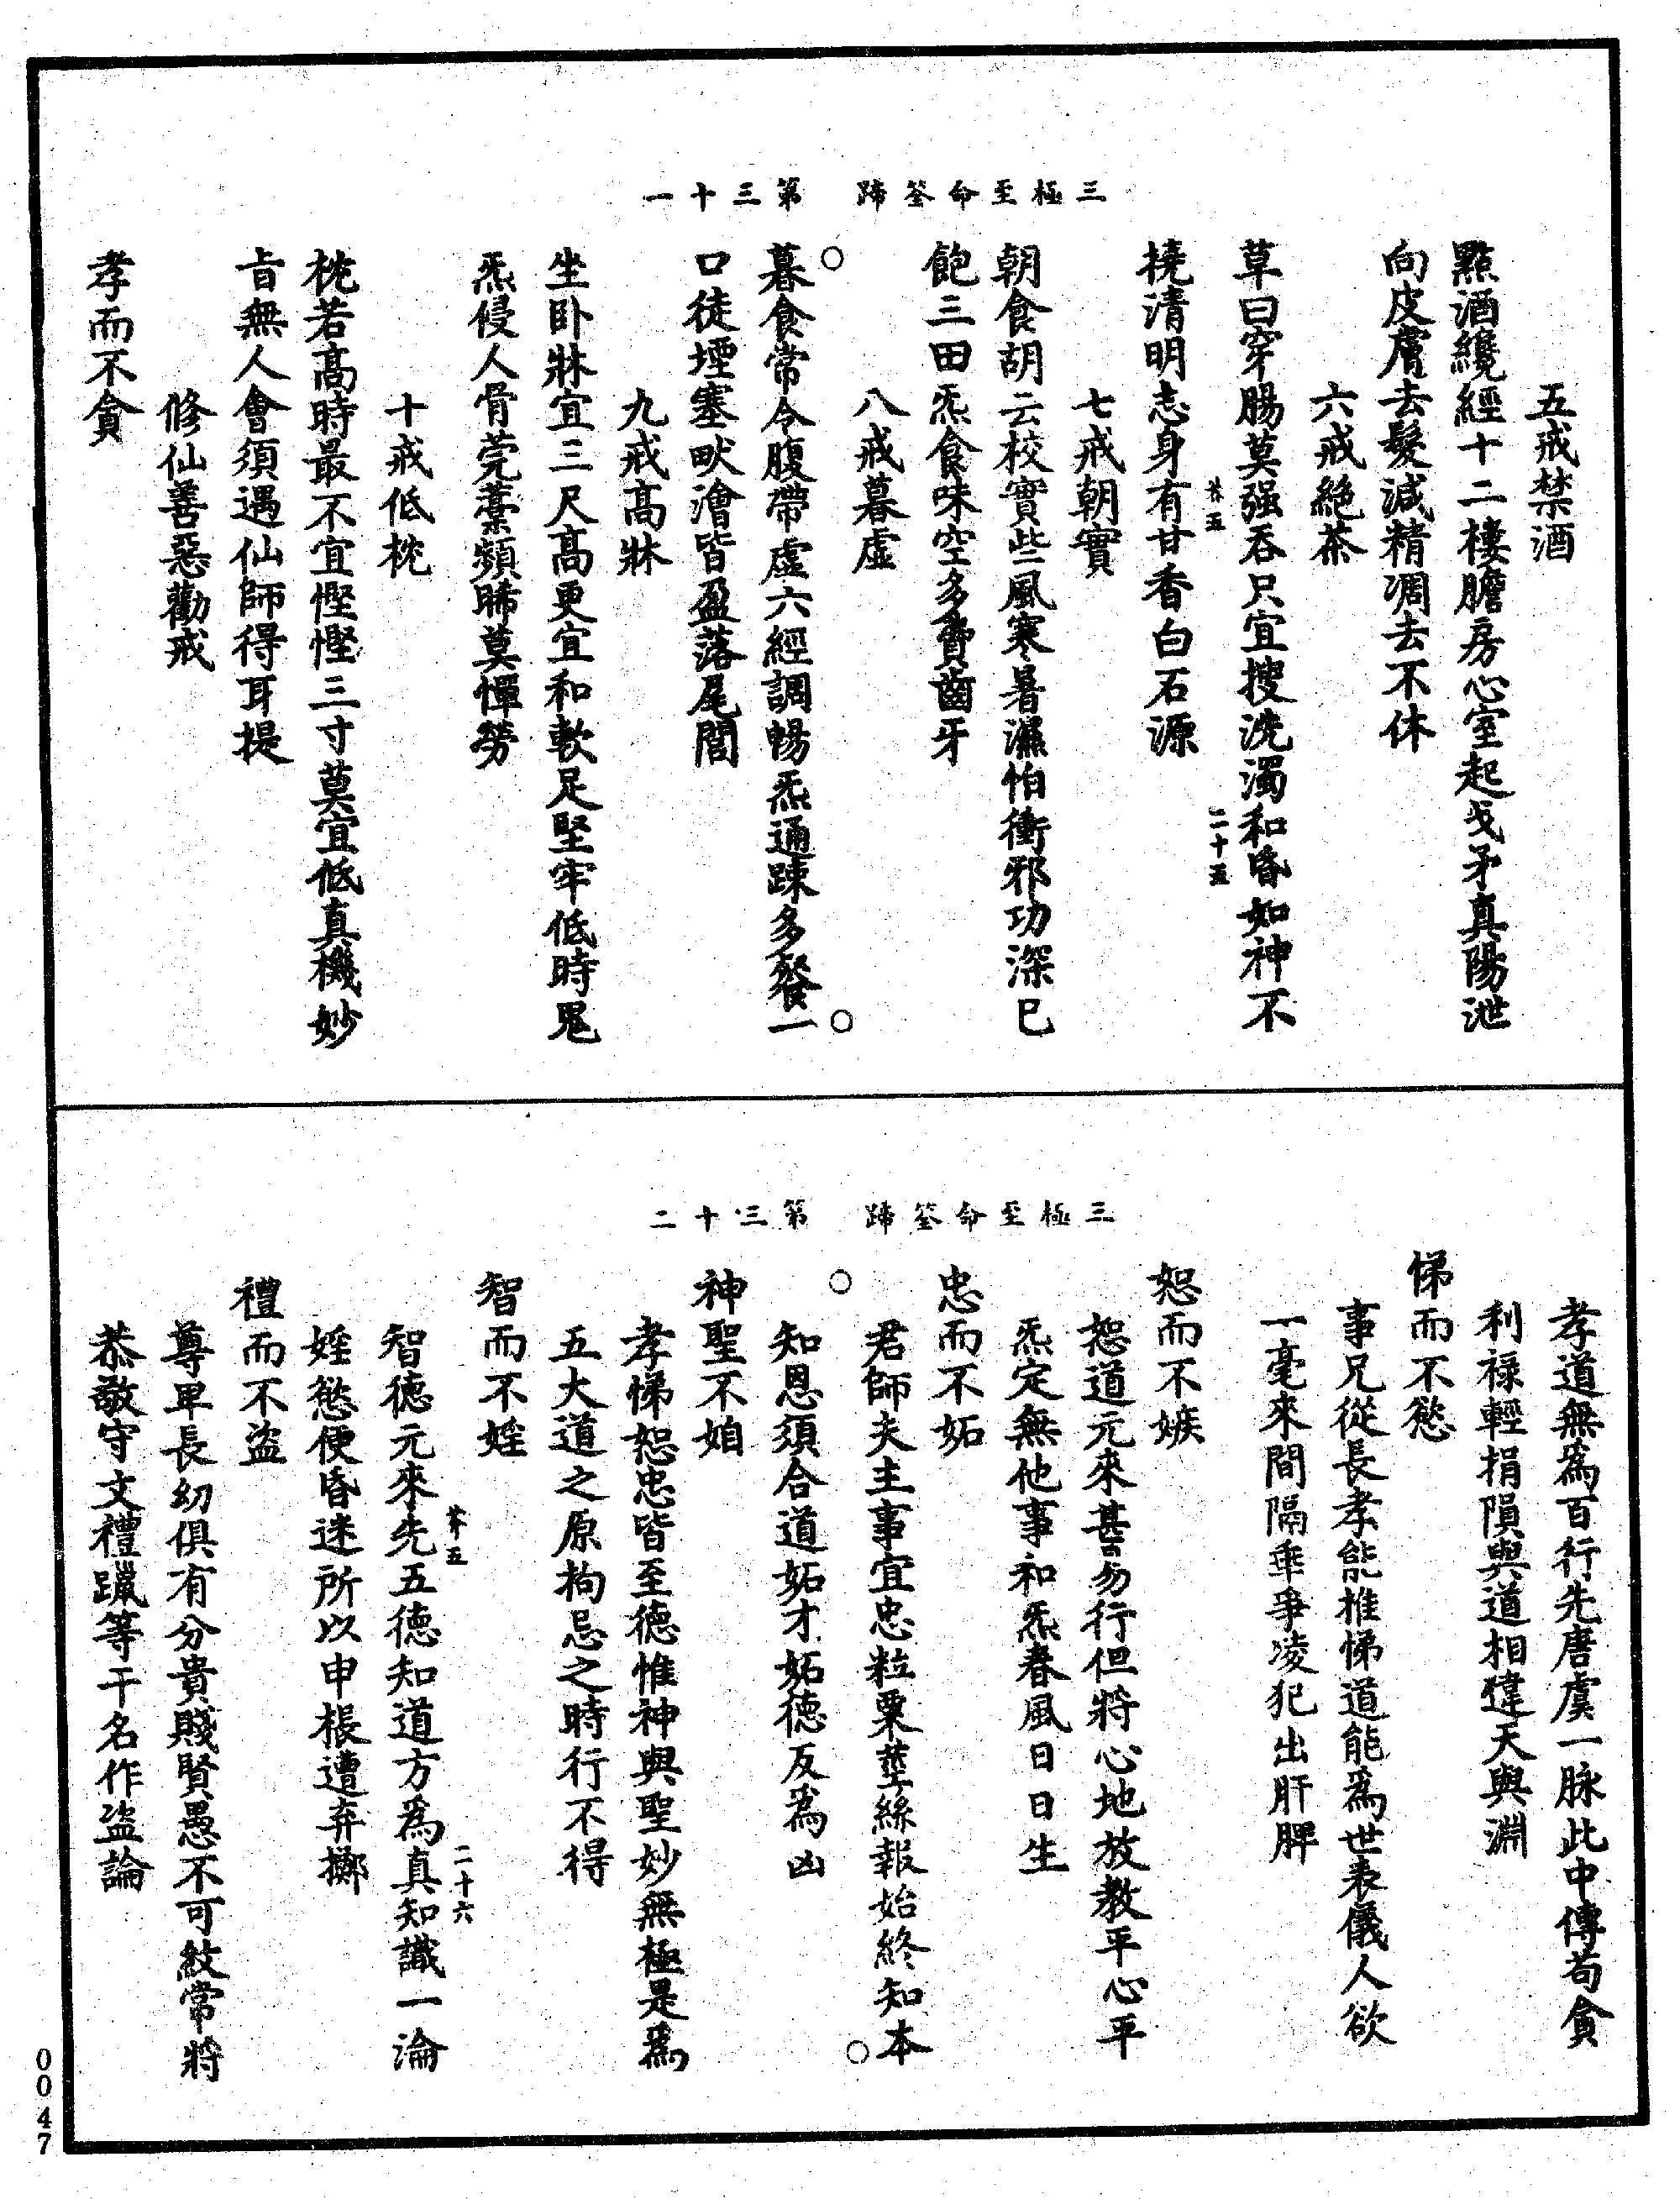 三極至命筌蹄　第三十一
五戒禁酒
點酒纔經十二樓膽房心室起戈矛真陽泄
向皮膚去髮減精凋去不休
六戒絕茶
草曰穿腸莫强吞只宜搜洗濁和昏如神不
撓清明志身有甘香白石源
芥五
二十五
七戒朝實
朝食胡云校實些風寒暑濕怕衝邪功深巳
飽三田炁食味空多費齒牙
八戒暮虛
暮食常令腹帶虛六經調暢炁通踈多餐一
口徒堙塞畎澮皆盈落尾閭
九戒高牀
坐卧牀宜三尺高更宜和軟足堅牢低時鬼
炁侵人骨莞藁頻晞莫憚勞
十戒低枕
枕若高時最不宜慳慳三寸莫宜低真機妙
旨無人會須遇仙師得耳提
修仙善惡勸戒
孝而不貪
三極至命筌蹄　第三十二
孝道無為百行先唐虞一脉此中傳苟貪
利祿輕捐隕與道相違天與淵
悌而不慾
事兄從長孝能推悌道能為世表儀人欲
一毫來間隔乖爭凌犯出肝脾
恕而不嫉
恕道元來甚勿行但將心地放教平心平
炁定無他事和炁春風日日生
忠而不妬
君師夫主事宜忠粒粟莖絲報始終知本
知恩須合道妬才妬德反為凶
神聖不媢
孝悌恕忠皆至德惟神與聖妙無極是為
五大道之原拘忌之時行不得
智而不婬
智德元來先五德知道方為真知識一淪
婬慾便昏迷所以申棖遭弃擲
芥五
二十六
禮而不盜
尊卑長幼俱有分貴賤賢愚不可紋常將
恭敬守文禮躐等干名作盜論
0047